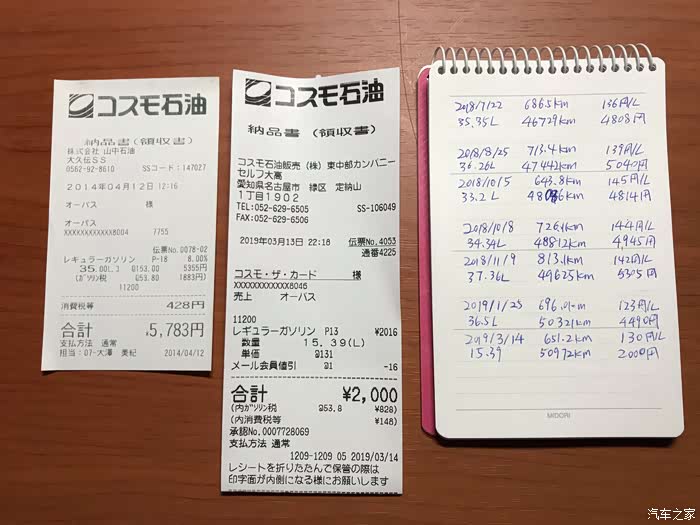 コスモ石油
納品書(領収書)
株式会社 山中石油
大久伝SS
0562-92-8610 SSコード:147027
2014年04月12日 12:16
オーパス 様
オーパス
XXXXXXXXXXXX8004 7755
伝票No.0078-02
レギュラーガソリン P-18 8.00%
35.00L 2 @153.00 5355円
(ガソリン税 @53.80 1883円)
11200
消費税等 428円
合計 ¥5,783円
支払方法 通常
担当:07-大澤 美紀 2014/04/12
コスモ石油
納品書(領収書)
コスモ石油販売(株)東中部カンパニー
セルフ大高
愛知県名古屋市 緑区 定納山
1丁目1902
TEL:052-629-6505 SS-106049
FAX:052-629-6506
2019年03月13日 22:16 伝票No.4053
通番4225
コスモ・ザ・カード 様
XXXXXXXXXXXX6046
売上 オーパス
11200
レギュラーガソリン P13 ¥2016
数量 15.39(L)
単価 @131
メール会員値引 @1 -16
合計 ¥2,000
(内ガソリン税 @53.8 ¥828)
(内消費税等 ¥148)
承認No.0007728069
支払方法 通常
1209-1209 05 2019/03/14
レシートを折りたたんで保管の際は
印字面が内側になる様にお願いします
2018/7/22 686.5km 136円/L
35.35L 46729km 4808円
2018/8/25 713.4km 139円/L
36.26L 47442km 5040円
2018/10/5 643.8km 145円/L
33.2L 48086km 4814円
2018/10/8 726.1km 144円/L
34.34L 48812km 4945円
2018/11/9 813.1km 142円/L
37.36L 49625km 5305円
2019/1/25 696.0km 123円/L
36.5L 50321km 4490円
2019/3/14 651.2km 130円/L
15.39 50972km 2000円
MIDORI
汽车之家